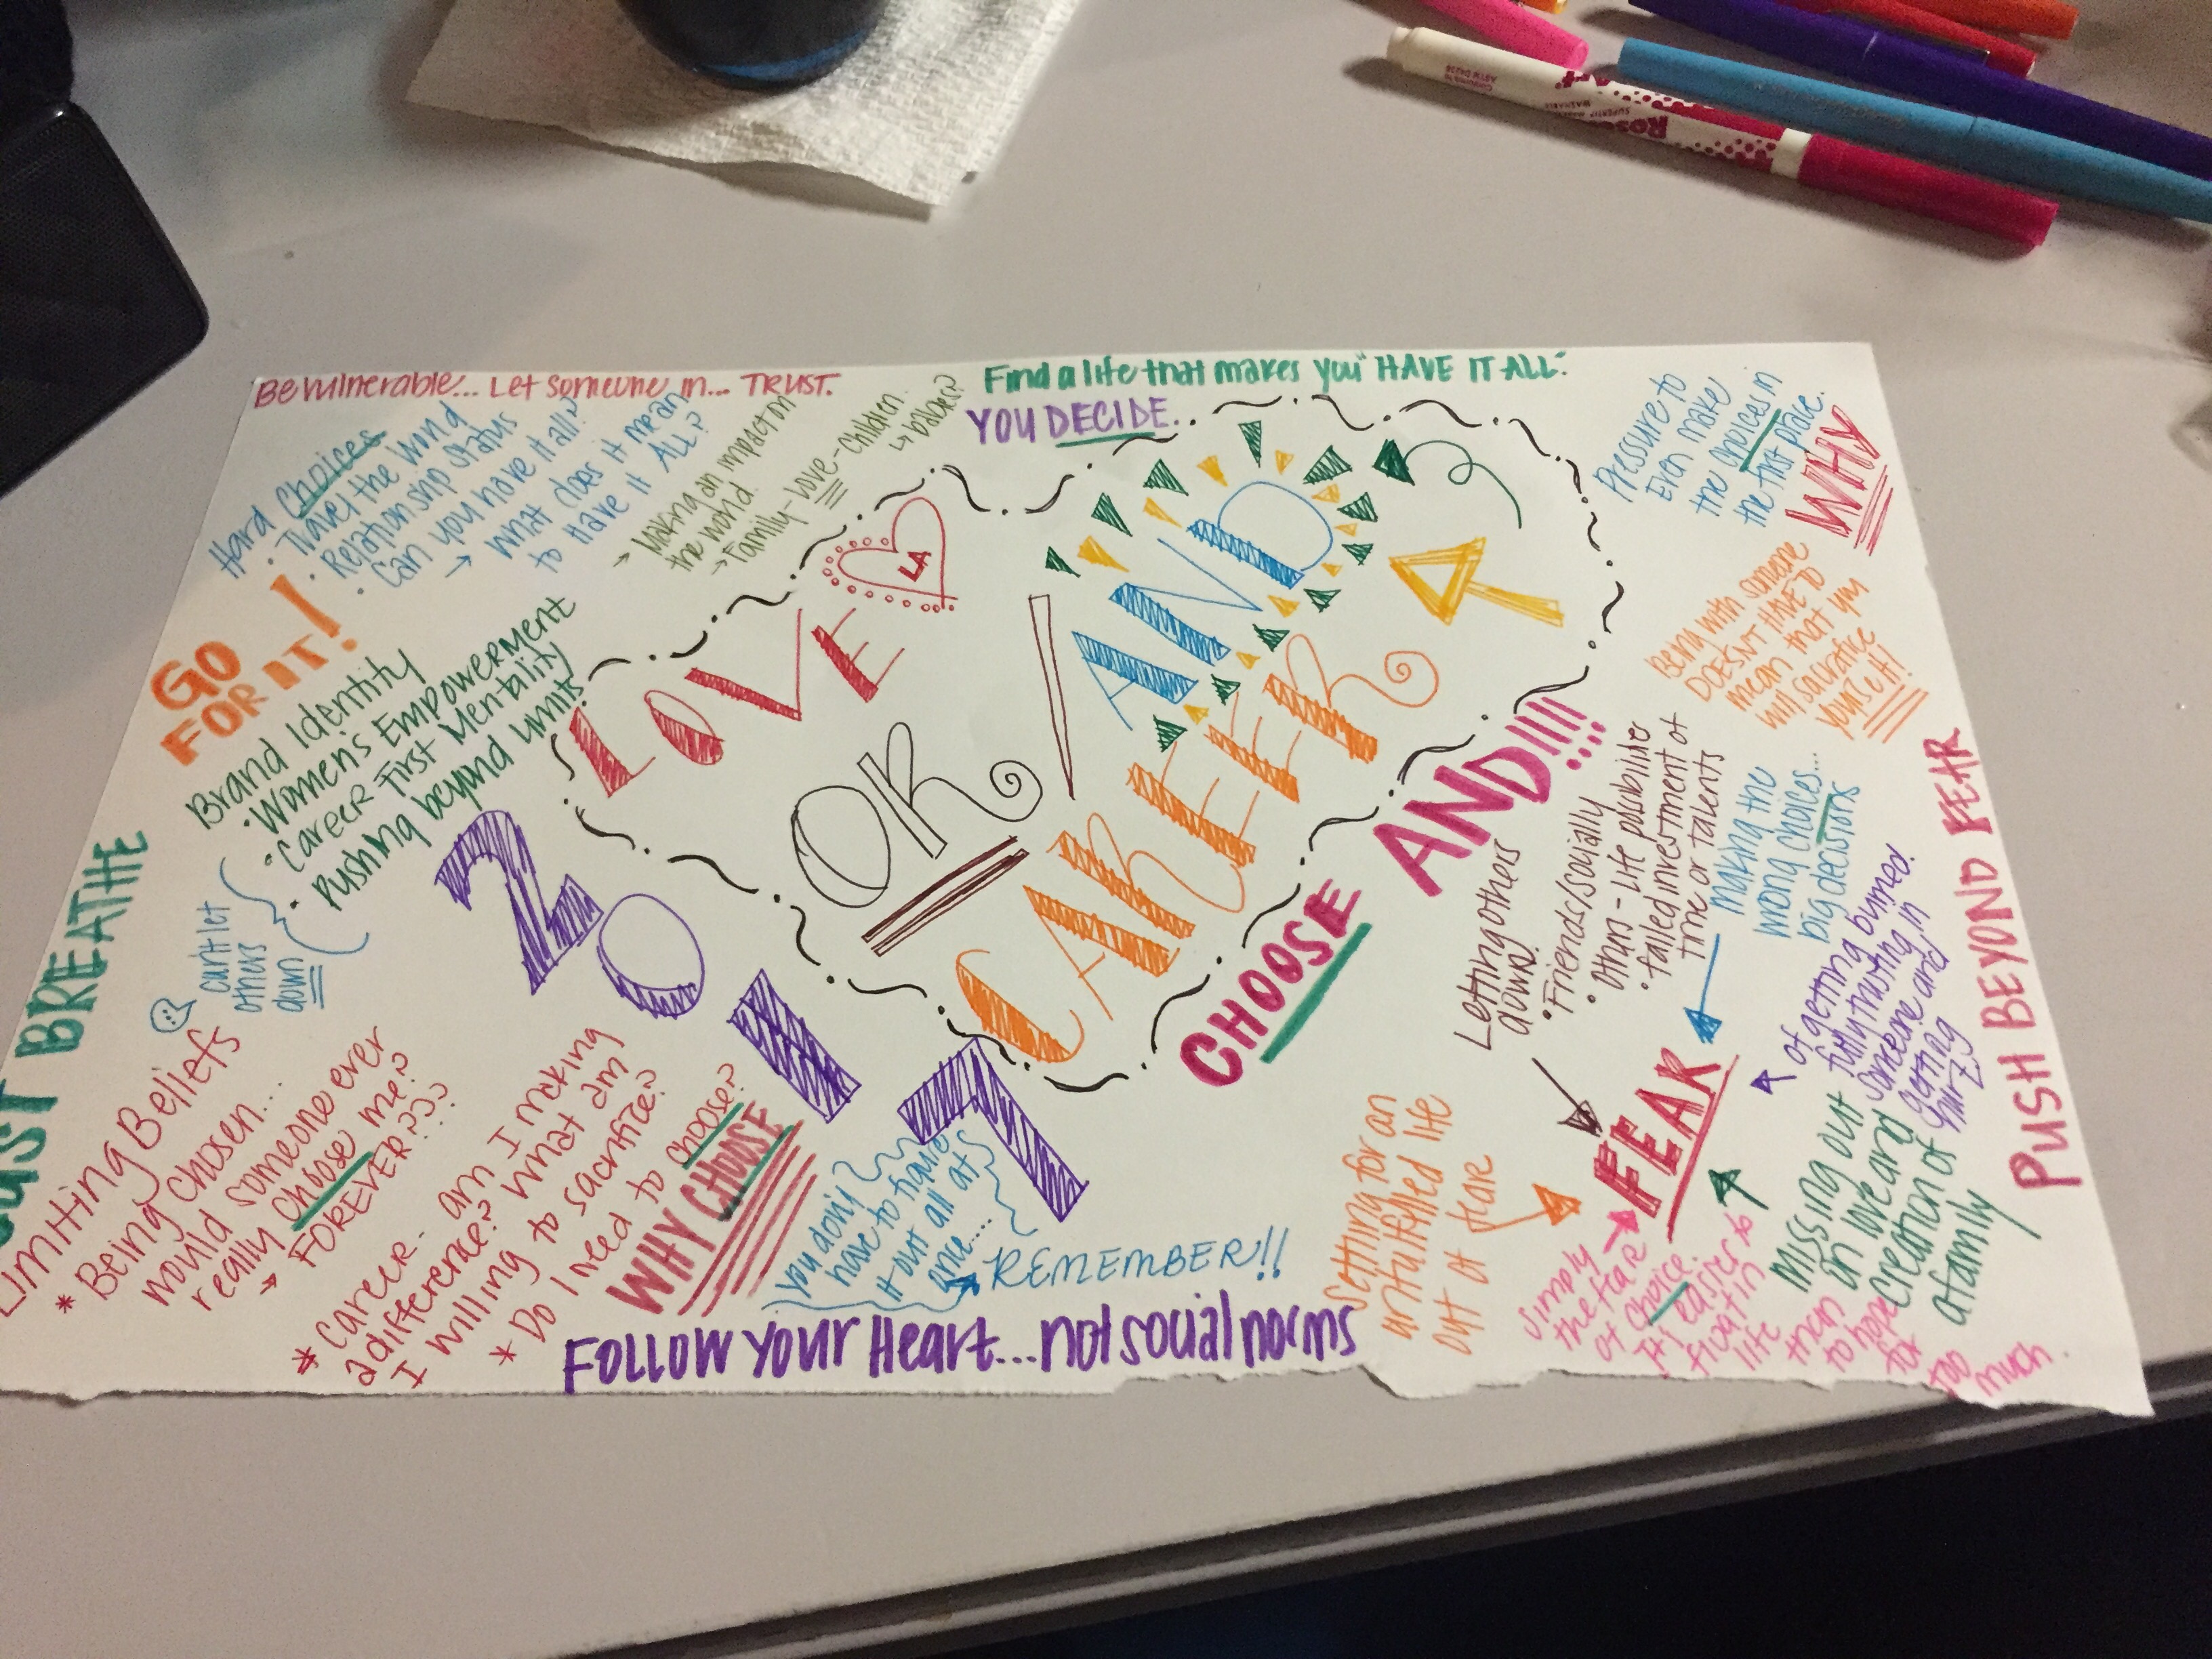 Be vulnerable... Let someone in... TRUST.
Find a life that makes you "HAVE IT ALL."
YOU DECIDE..
Hard Choices
· Travel the World
· Relationship Status
Can you have it all?
→ What does it mean
to Have it ALL?
→ Making an impact on
the world.
→ Family-Love-Children.
↳ babies?
Pressure to
Even make
the choices in
the first place.
WHY
GO
FOR IT!
Brand Identity
· Women's Empowerment
· Career First Mentality
· Pushing beyond limits
can't let
others
down
JUST BREATHE
LOVE
LA
OR / AND
CAREER
2017
CHOOSE AND!!!!
Being with someone
DOESN'T HAVE TO
mean that you
will sacrafice
yourself!
Letting others
down.
· Friends/socially
· others - life possibilities
· failed investment of
time or talents
making the
wrong choices...
big decisions
of getting burned.
fully trusting in
someone and
getting
hurt
FEAR
PUSH BEYOND FEAR
Missing out
on love and
creation of
a family
Settling for an
unfulfilled life
out of feare
simply
the feare
of choice.
It's easier to
float in
life
than
to hope
for
too
much.
Limiting Beliefs
* Being Chosen...
would someone ever
really choose me?
→ FOREVER???
* Career... am I making
a difference? What am
I willing to sacrifice?
* Do I need to choose?
WHY CHOOSE
you don't
have to figure
it out all at
once...
REMEMBER!!
FOLLOW YOUR Heart... not social norms
Conforms to
ASTM D4236
SUPERTIP
WASHABLE
RoseArt